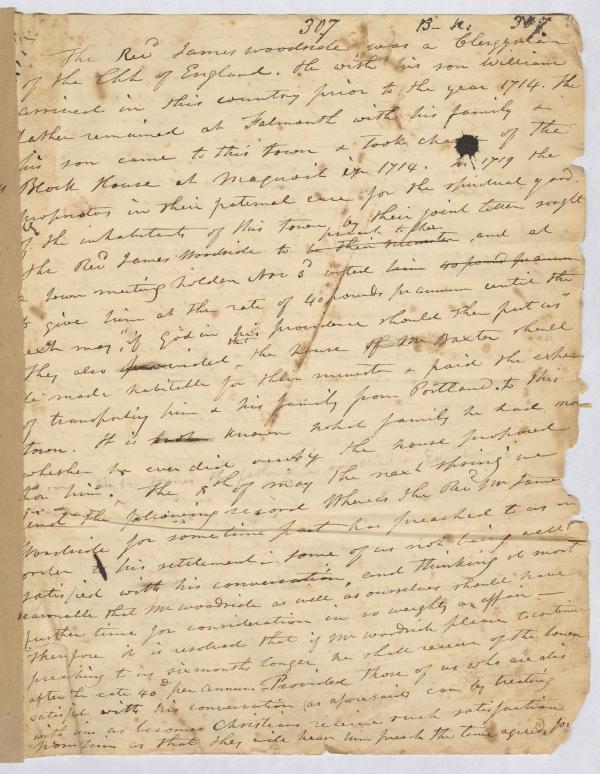 307 B- 307
The Revd James woodside was a Clergyman
of the Chh of England. He with his son William
arrived in this country prior to the year 1714. the
father remained at Falmouth with his family &
his son came to this town & took charge of the
Block House at Maquoit in 1714. In 1719 the
proprietors in their paternal care for the spiritual good
of the inhabitants of this town by their joint letter sought
present to them
the Revd James Woodside to be their minister, and at
a town meeting holden Nov 3d voted him 40 pound pr annum
to give him at the rate of 40 pounds pr annum until the
next may, "if God in his providence should then put us"
they also that the house of Mr Baxter shall
be made habitable for their minister & paid the expense
of transporting him & his family from Portland to this
town. It is not known what family he had nor
whether he ever did occupy the house prepared
for him. The 8th of may the next spring we
find the following record Whereas the Revd Mr James
Woodside for sometime past has preached to us in
order to his settlement & some of us not being well
satisfied with his conversation, and thinking it most
reasonable that Mr woodside as well as ourselves should have
further time for consideration in so weighty an affair —
Therefore it is resolved that if Mr woodside please to continue
preaching to us six months longer, he shall receive of the town
after the rate 40£ per annum - Provided those of us who are dis
satisfied with his conversation (as aforesaid) can by treating
with him as becomes Christians receive such satisfaction
from him as that they will hear him preach the time agreed for